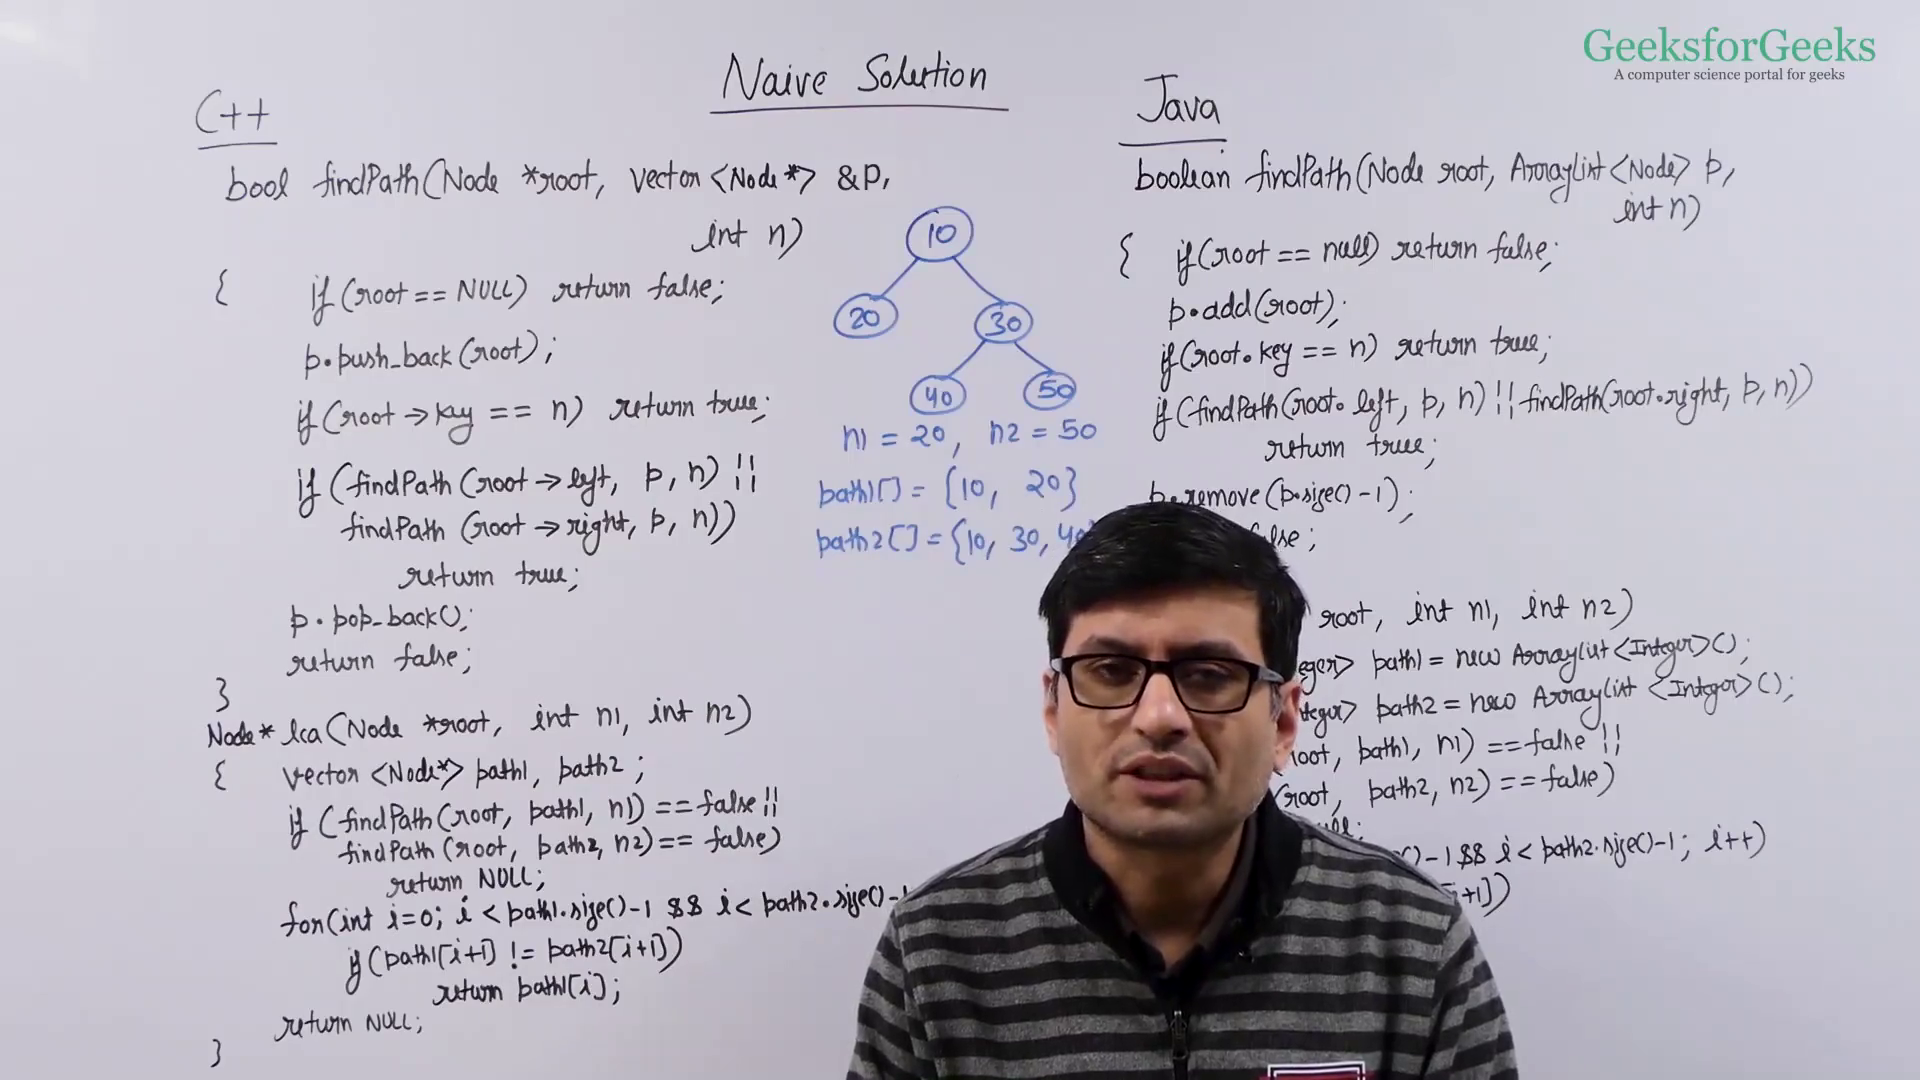 GeeksforGeeks
A computer science portal for geeks
Naive Solution
C++
bool findPath(Node *root, vector<Node*> &p,
int n)
{ if(root == NULL) return false;
p.push_back(root);
if(root->key == n) return true;
if (findPath(root->left, p, n) ||
findPath(root->right, p, n))
return true;
p.pop_back();
return false;
}
Node* lca(Node *root, int n1, int n2)
{ vector<Node*> path1, path2;
if (findPath(root, path1, n1) == false ||
findPath(root, path2, n2) == false)
return NULL;
for(int i=0; i < path1.size()-1 && i < path2.size()-1
if(path1[i+1] != path2[i+1])
return path1[i];
return NULL;
}
10
20 30
40 50
n1 = 20, n2 = 50
path1[] = {10, 20}
path2[] = {10, 30, 40
Java
boolean findPath(Node root, ArrayList<Node> p,
int n)
{ if(root == null) return false;
p.add(root);
if(root.key == n) return true;
if(findPath(root.left, p, n) || findPath(root.right, p, n))
return true;
p.remove(p.size()-1);
lse;
root, int n1, int n2)
eger> path1 = new ArrayList<Integer>();
nteger> path2 = new ArrayList<Integer>();
root, path1, n1) == false ||
root, path2, n2) == false)
)-1 && i < path2.size()-1; i++)
+1])